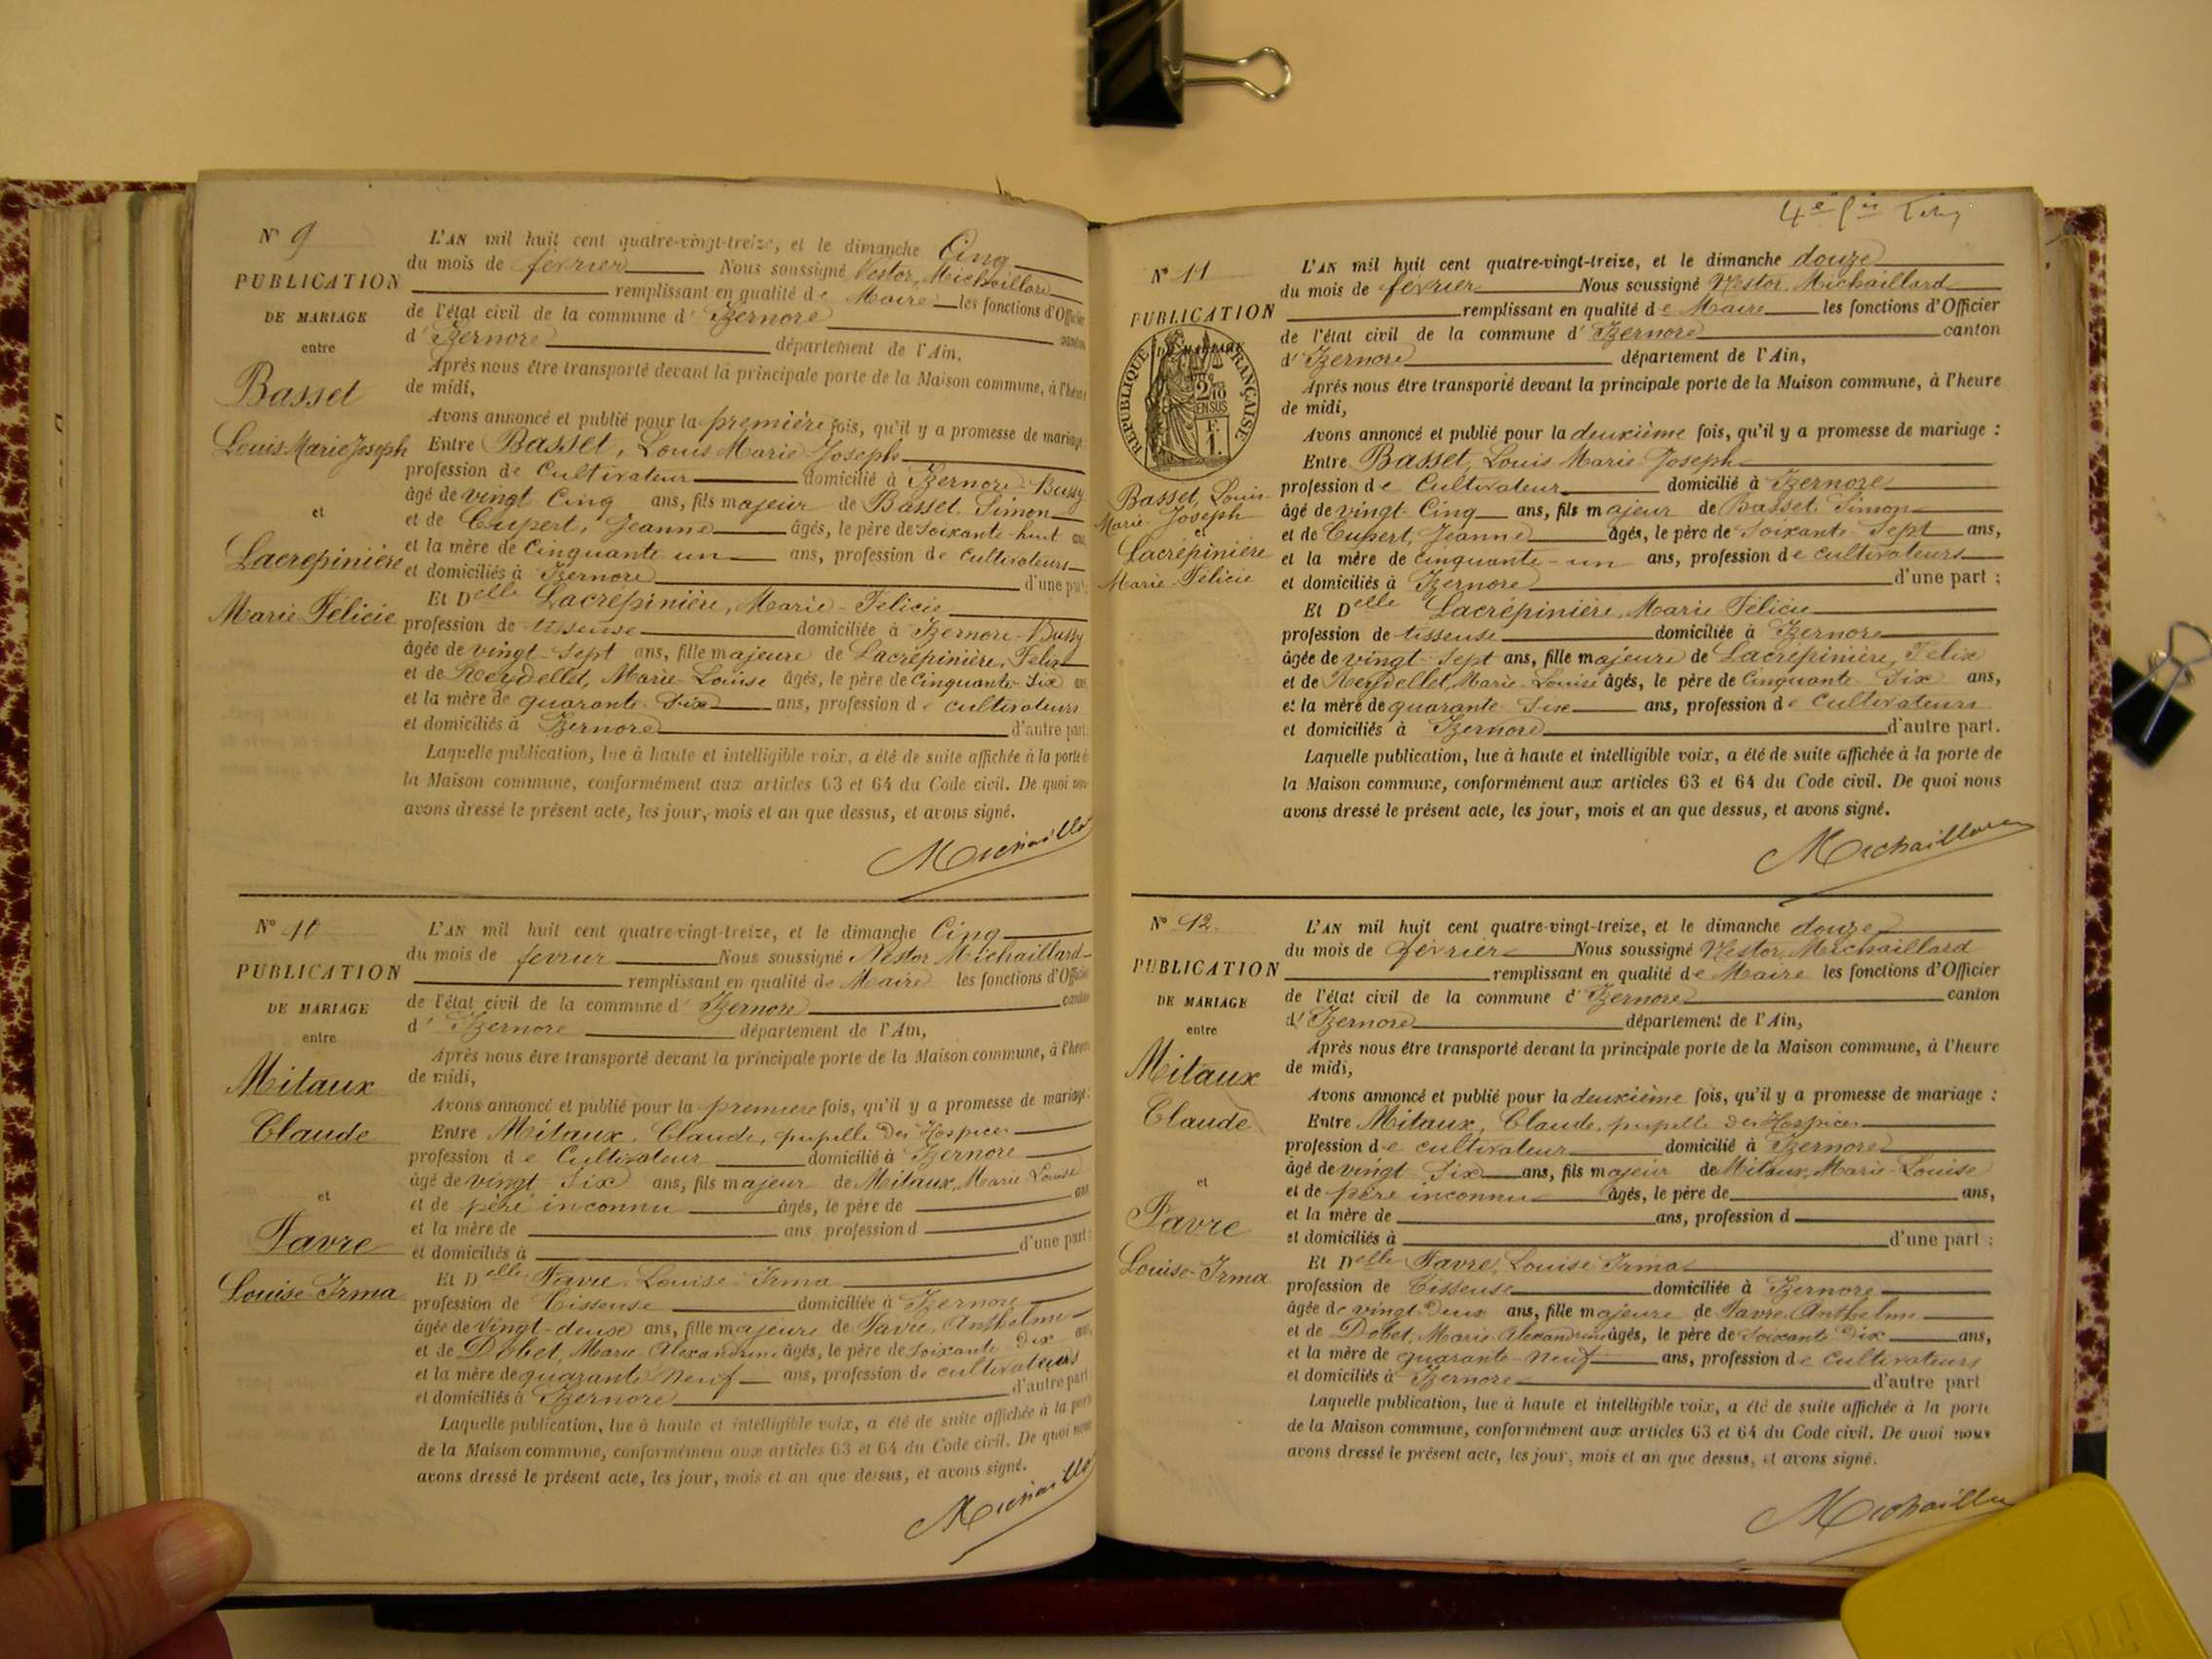 N° 9
PUBLICATION
DE MARIAGE
entre
Basset
Louis Marie Joseph
et
Lacrepinière
Marie Félicie
L'AN mil huit cent quatre-vingt-treize, et le dimanche Cinq
du mois de fevrier Nous soussigné Nestor, Michaillard
remplissant en qualité de Maire les fonctions d'Officier
de l'état civil de la commune d'Izernore canton
d'Izernore département de l'Ain,
Après nous être transporté devant la principale porte de la Maison commune, à l'heure
de midi,
Avons annoncé et publié pour la première fois, qu'il y a promesse de mariage
Entre Basset, Louis Marie Joseph
profession de Cultivateur domicilié à Izernore-Bussy
âgé de vingt Cinq ans, fils majeur de Basset Simon
et de Cupert, Jeanne âgés, le père de soixante-huit ans
et la mère de Cinquante un ans, profession de cultivateurs
et domiciliés à Izernore d'une part
Et Delle Lacrépinière, Marie-Félicie
profession de tisseuse domiciliée à Izernore-Bussy
âgée de vingt-sept ans, fille majeure de Lacrépinière, Felix
et de Reydellet, Marie-Louise âgés, le père de Cinquante-six ans
et la mère de quarante six ans, profession de cultivateurs
et domiciliés à Izernore d'autre part.
Laquelle publication, lue à haute et intelligible voix, a été de suite affichée à la porte de
la Maison commune, conformément aux articles 63 et 64 du Code civil. De quoi nous
avons dressé le présent acte, les jour, mois et an que dessus, et avons signé.
Michaill
N° 10
PUBLICATION
DE MARIAGE
entre
Mitaux
Claude
et
Favre
Louise-Irma
L'AN mil huit cent quatre-vingt-treize, et le dimanche Cinq
du mois de fevrier Nous soussigné Nestor Michaillard
remplissant en qualité de Maire les fonctions d'Officier
de l'état civil de la commune d'Izernore canton
d'Izernore département de l'Ain,
Après nous être transporté devant la principale porte de la Maison commune, à l'heure
de midi,
Avons annoncé et publié pour la première fois, qu'il y a promesse de mariage:
Entre Mitaux, Claude, pupille des Hospices
profession de Cultivateur domicilié à Izernore
âgé de vingt six ans, fils majeur de Mitaux, Marie Louise
et de père inconnu âgés, le père de ans
et la mère de ans profession d
et domiciliés à d'une part;
Et Delle Favre Louise Irma
profession de Tisseuse domiciliée à Izernore
âgée de vingt-deux ans, fille majeure de Favre, Anthelme
et de Dobet, Marie Alexandrine âgés, le père de soixante Dix ans
et la mère de quarante Neuf ans, profession de cultivateurs
et domiciliés à Izernore d'autre part
Laquelle publication, lue à haute et intelligible voix, a été de suite affichée à la porte
de la Maison commune, conformément aux articles 63 et 64 du Code civil. De quoi nous
avons dressé le présent acte, les jour, mois et an que dessus, et avons signé.
Michaill
N° 11
PUBLICATION
DE MARIAGE
RÉPUBLIQUE FRANÇAISE
2/10 EN SUS
F. 1.
Basset, Louis
Marie Joseph
et
Lacrépinière
Marie-Félicie
L'AN mil huit cent quatre-vingt-treize, et le dimanche douze
du mois de fevrier Nous soussigné Nestor, Michaillard
remplissant en qualité de Maire les fonctions d'Officier
de l'état civil de la commune d'Izernore canton
d'Izernore département de l'Ain,
Après nous être transporté devant la principale porte de la Maison commune, à l'heure
de midi,
Avons annoncé et publié pour la deuxième fois, qu'il y a promesse de mariage :
Entre Basset, Louis Marie Joseph
profession de Cultivateur domicilié à Izernore
âgé de vingt-Cinq ans, fils majeur de Basset Simon
et de Cupert, Jeanne âgés, le père de soixante sept ans,
et la mère de cinquante-un ans, profession de cultivateurs
et domiciliés à Izernore d'une part ;
Et Delle Lacrépinière, Marie Félicie
profession de tisseuse domiciliée à Izernore
âgée de vingt-sept ans, fille majeure de Lacrépinière, Felix
et de Reydellet, Marie-Louise âgés, le père de Cinquante six ans,
et la mère de quarante-six ans, profession de Cultivateurs
et domiciliés à Izernore d'autre part.
Laquelle publication, lue à haute et intelligible voix, a été de suite affichée à la porte de
la Maison commune, conformément aux articles 63 et 64 du Code civil. De quoi nous
avons dressé le présent acte, les jour, mois et an que dessus, et avons signé.
Michaillard
N° 12
PUBLICATION
DE MARIAGE
entre
Mitaux
Claude
et
Favre
Louise-Irma
L'AN mil huit cent quatre-vingt-treize, et le dimanche douze
du mois de février Nous soussigné Nestor, Michaillard
remplissant en qualité de Maire les fonctions d'Officier
de l'état civil de la commune d'Izernore canton
d'Izernore département de l'Ain,
Après nous être transporté devant la principale porte de la Maison commune, à l'heure
de midi,
Avons annoncé et publié pour la deuxième fois, qu'il y a promesse de mariage :
Entre Mitaux, Claude, pupille des Hospices
profession de cultivateur domicilié à Izernore
âgé de vingt six ans, fils majeur de Mitaux, Marie-Louise
et de père inconnu âgés, le père de ans,
et la mère de ans, profession d
et domiciliés à d'une part ;
Et Delle Favre, Louise Irma
profession de Tisseuse domiciliée à Izernore
âgée de vingt Deux ans, fille majeure de Favre, Anthelme
et de Dobet, Marie Alexandrine âgés, le père de soixante Dix ans,
et la mère de quarante-neuf ans, profession de cultivateurs
et domiciliés à Izernore d'autre part
Laquelle publication, lue à haute et intelligible voix, a été de suite affichée à la porte
de la Maison commune, conformément aux articles 63 et 64 du Code civil. De quoi nous
avons dressé le présent acte, les jour, mois et an que dessus, et avons signé.
Michailla